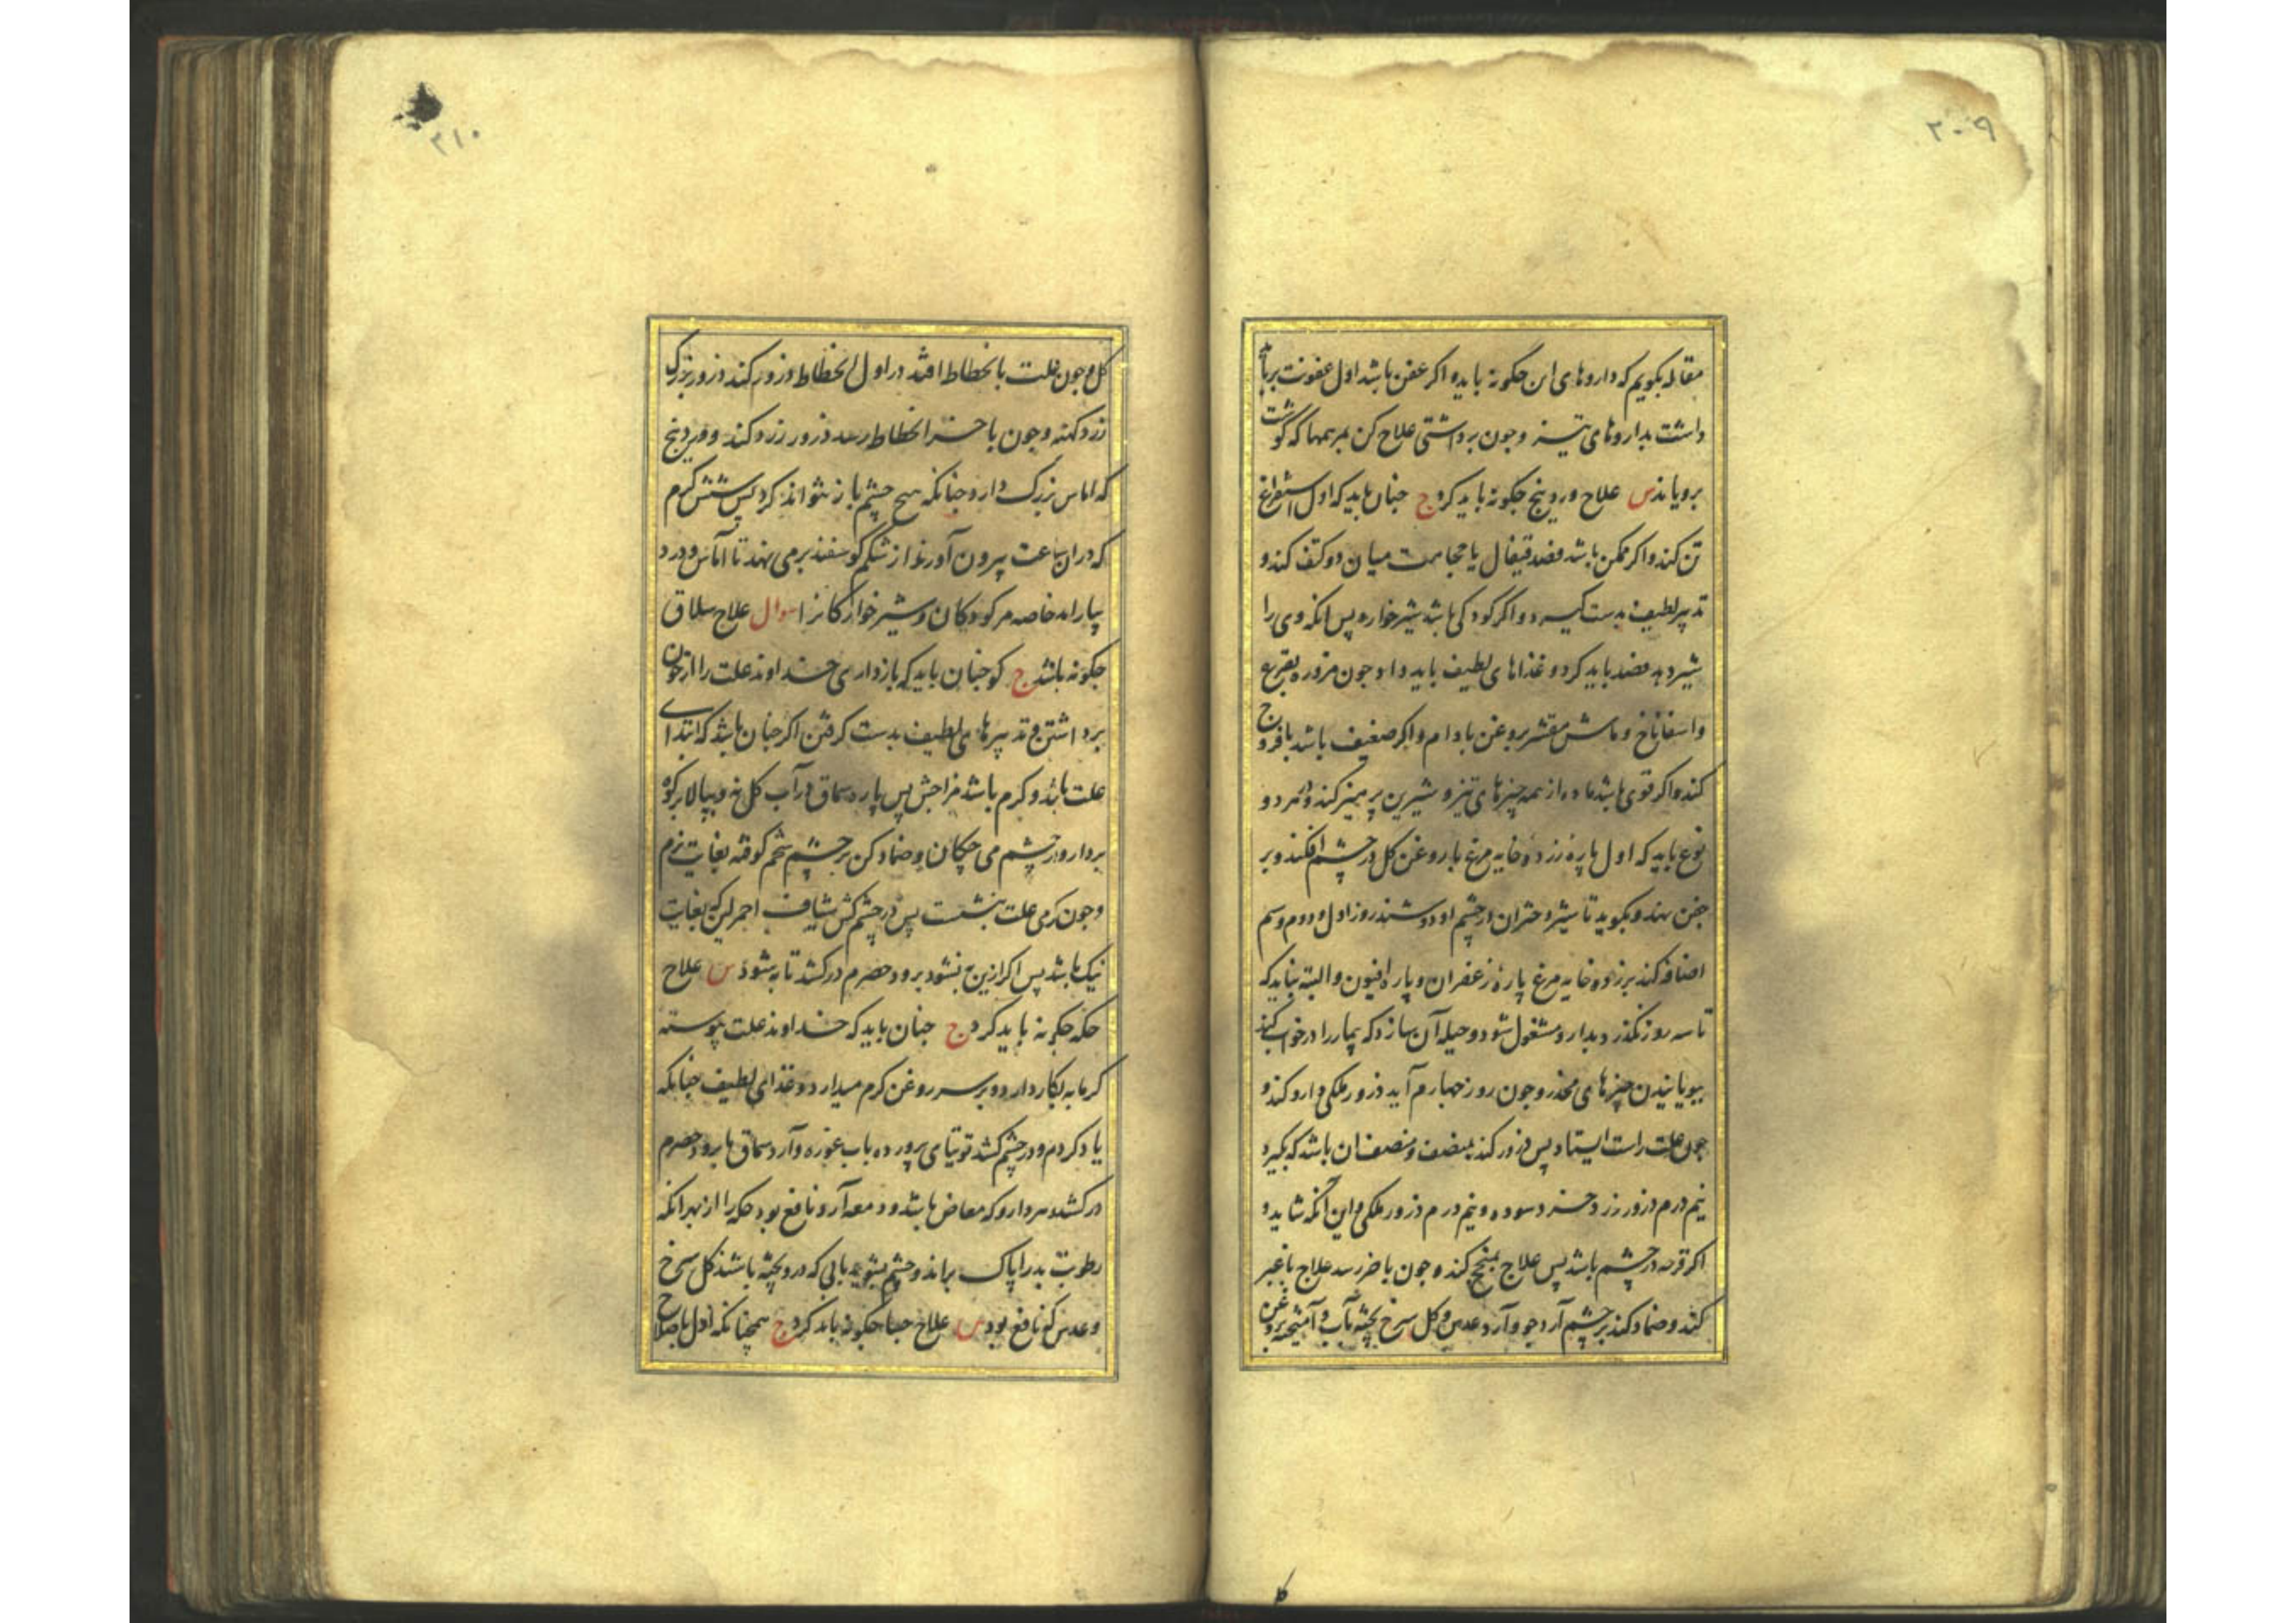 ۲۰۹
مقاله بکویم که داروهای این جکونه باید و اکر عفن باشد اول عفونت بر باید
داشت بداروهای تیز و جون برداشتی علاج کن بمرهمها که کوشت
برویاند س علاج وردینج جکونه باید کرد ج جنان باید که اول استفراغ
تن کند و اکر ممکن باشد فصد قیفال یا حجامت میان دو کتف کند و
تدبیر لطیف بدست کیرد و اکر کودکی باشد شیرخواره پس انکه وی را
شیر دهد فصد باید کرد و غذاهای لطیف باید داد جون مزوره بقرع
و اسفاناخ و ماش مقشر بروغن بادام و اکر ضعیف باشد با فروج
کند و اکر قوی باشد ماده از همه جیزهای تیز و شیرین پرهیز کند و هر دو
نوع باید که اول پاره زرده خایه مرغ با روغن کل در جشم افکند و بر
جفن نهند و بکوید تا شیر دختران در جشم او دوشند روز اول و دوم و سیم
اضافه کند بر زرده خایه مرغ پاره زعفران و پاره افیون و البته نباید که
تا سه روز نکذرد بدارو مشغول شود و حیله آن سازد که بیمار را در خواب کند
ببویانیدن جیزهای مخدر و جون روز جهارم آید ذرور ملکی دارو کند و
جون علت راست ایستاد پس ذرور کند بمنصف و منصف ان باشد که بکیرد
نیم درم ذرور زرد خرد سوده و نیم درم ذرور ملکی و این آنکه شاید و
اکر قرحه در جشم باشد پس علاج کند و جون باخر رسد علاج باغبر
کند و ضماد کند بر جشم آرد جو و آرد عدس و کل سرخ پخته بآب و آمیخته بروغن
۲۱۰
کل و جون علت بانحطاط افتد در اول انحطاط ذرور کند ذرور بزرک
زرد کهنه و جون باخر انحطاط رسد ذرور زرد کند و وردینج
که اماس بزرک دارد جنانکه هیچ جشم باز نتواند کرد پس شش کرم
که دران ساعت بیرون آورند از شکم کوسفند بر می نهند تا آماس و درد
بیارامد خاصه مر کودکان و شیرخوارکانرا سوال علاج سلاق
جکونه باشد ج کو جنان باید که بازداری خداوند علت را از خون
برداشتن و تدبیرهای لطیف بدست کرفتن اکر جنان باشد که ابتدای
علت باشد و کرم باشد مزاجش پس پاره سماق در آب کل نه و بپالا برکوه
بردار و در جشم می جکان و ضماد کن بر جشم شحم کوفته بغایت نرم
و جون کرمی علت بنشست پس در جشم کش شیاف احمر لین که بغایت
نیک باشد پس اکر ازین به نشود برود حصرم درکشد تا به شود س علاج
حکه جکونه باید کرد ج جنان باید که خداوند علت پیوسته
کرمابه بکار دارد و بر سر روغن کرم میدارد و غذای لطیف جنانکه
یاد کردم و در جشم کشد توتیای پرورده باب غوره و آرد سماق یا برود حصرم
درکشد و هر دارو که معاض باشد و دمعه آرد نافع بود حکه را از بهر انکه
رطوبت بد را پاک براند و جشم بشوید بابی که در و پخته باشند کل سرخ
و عدس که نافع بود س علاج جسا جکونه باید کرد ج همجنانکه اول باصلاح